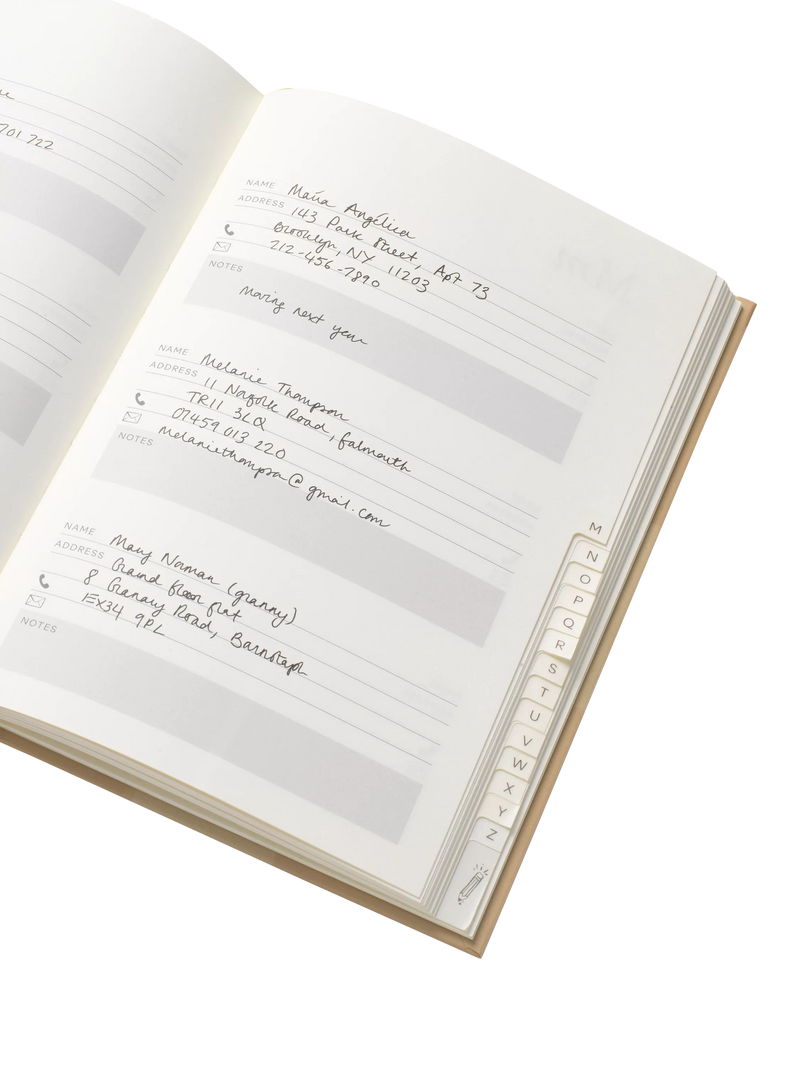 701 722
NAME María Angélica
ADDRESS 143 Park Street, Apt 73
Brooklyn, NY 11203
212-456-7890
NOTES
Moving next year
NAME Melanie Thompson
ADDRESS 11 Norfolk Road, Falmouth
TR11 3LQ
07459 013 220
melaniethompson@gmail.com
NOTES
NAME Mary Norman (granny)
ADDRESS Grand floor flat
8 Granary Road, Barnstaple
EX34 9PL
NOTES
M
N
O
P
Q
R
S
T
U
V
W
X
Y
Z